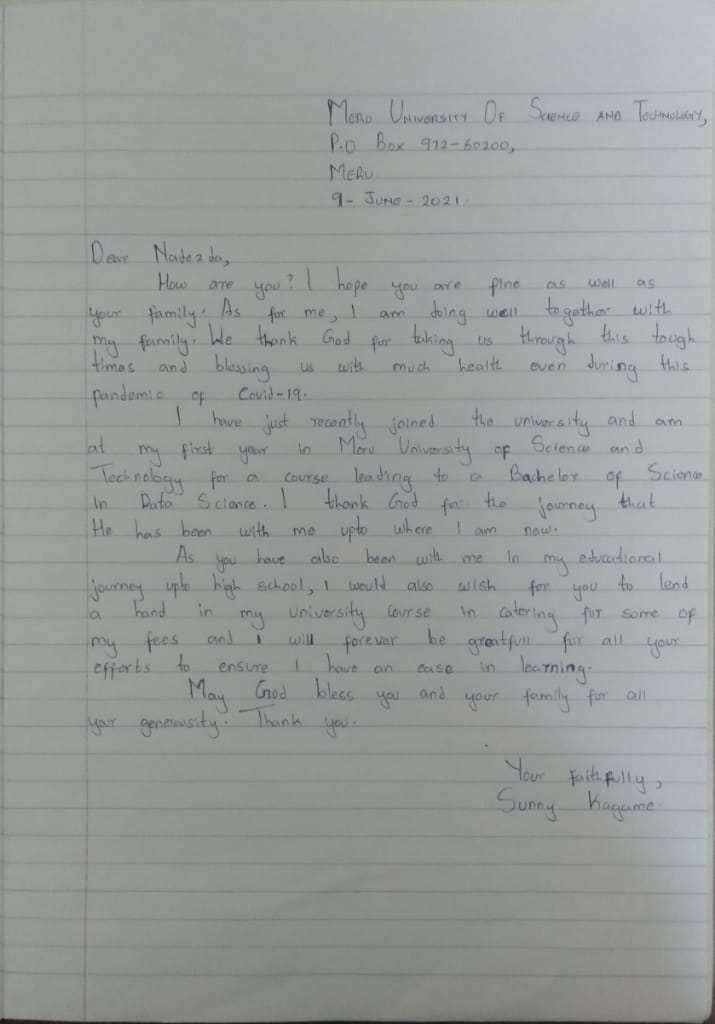 MERU UNIVERSITY OF SCIENCE AND TECHNOLOGY,
P.O BOX 972-60200,
MERU.
9- JUNE - 2021.
Dear Nadezda,
How are you? I hope you are fine as well as
your family. As for me, I am doing well together with
my family. We thank God for taking us through this tough
times and blessing us with much health even during this
pandemic of Covid-19.
I have just recently joined the university and am
at my first year in Meru University of Science and
Technology for a course leading to a Bachelor of Science
In Data Science. I thank God for the journey that
He has been with me upto where I am now.
As you have also been with me In my educational
journey upto high school, I would also wish for you to lend
a hand in my university course in catering for some of
my fees and I will forever be greatfull for all your
efforts to ensure I have an ease in learning.
May God bless you and your family for all
your generousity. Thank you.
Your faithfully,
Sunny Kagame.